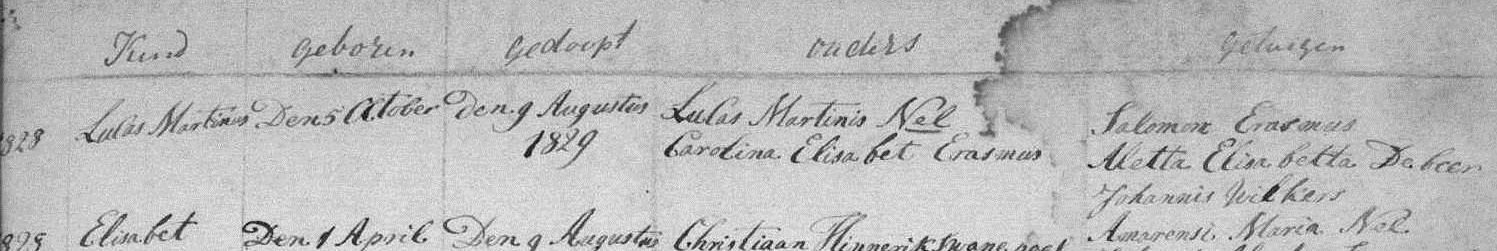 Kind geboren gedoopt ouders getuigen
1828 Lulas Martinus Den 5 October den 9 Augustus Lulas Martinis Nel Salomon Erasmus
1829 Carolina Elisabet Erasmus Aletta Elisabetta Debeer
Johannis Wilkers
Elisabet Den 1 April Den 9 Augustus Christiaan Hinnerik Maria Nel